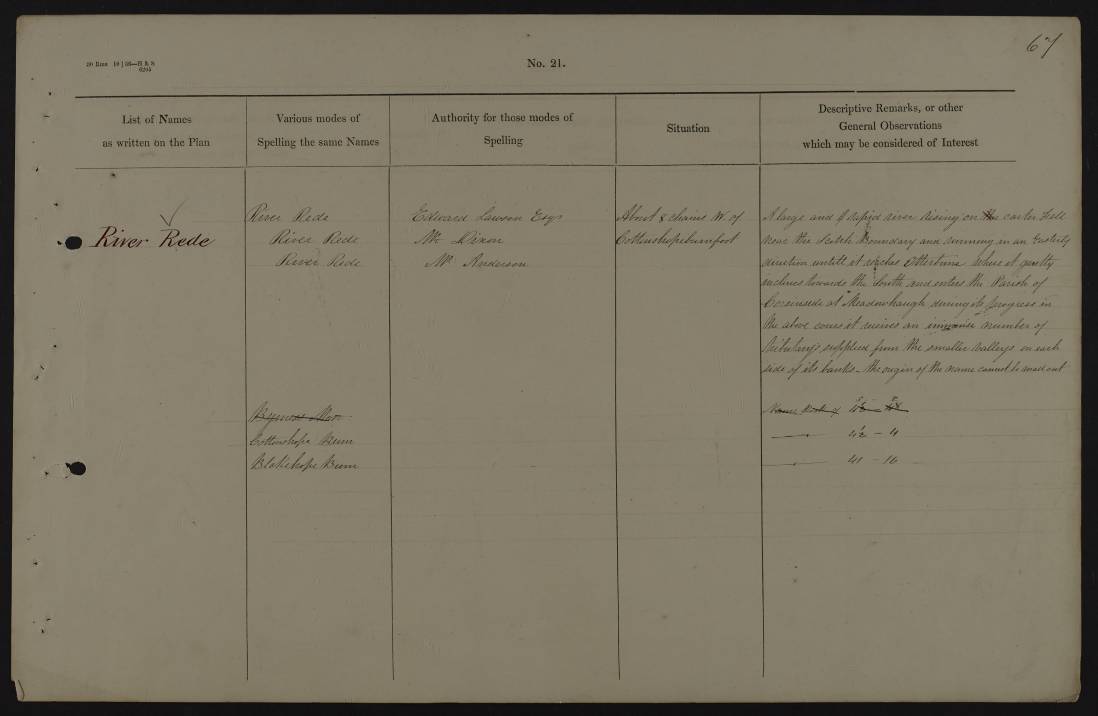 67
30 Rms 10 | 58—H & S
6205
No. 21.
List of Names
as written on the Plan
Various modes of
Spelling the same Names
Authority for those modes of
Spelling
Situation
Descriptive Remarks, or other
General Observations
which may be considered of Interest
River Rede
River Rede
River Rede
River Rede
Edward Lawson Esqr
Mr. Dixon
Mr. Anderson
About 8 chains W. of
Cottonshopeburnfoot
A large and rapid river rising on the carter Fell
near the Scotch Boundary and running in an Easterly
direction untill it reaches Otterburn where it gently
inclines towards the South and enters the Parish of
Corsenside at Meadowhaugh during its progress in
the above course it receives an immense number of
tributarys supplied from the smaller valleys on each
side of its banks - the origin of the name cannot be made out
Cottonshope Burn
Blakehope Burn
Name Book of
42 - 4
41 - 16